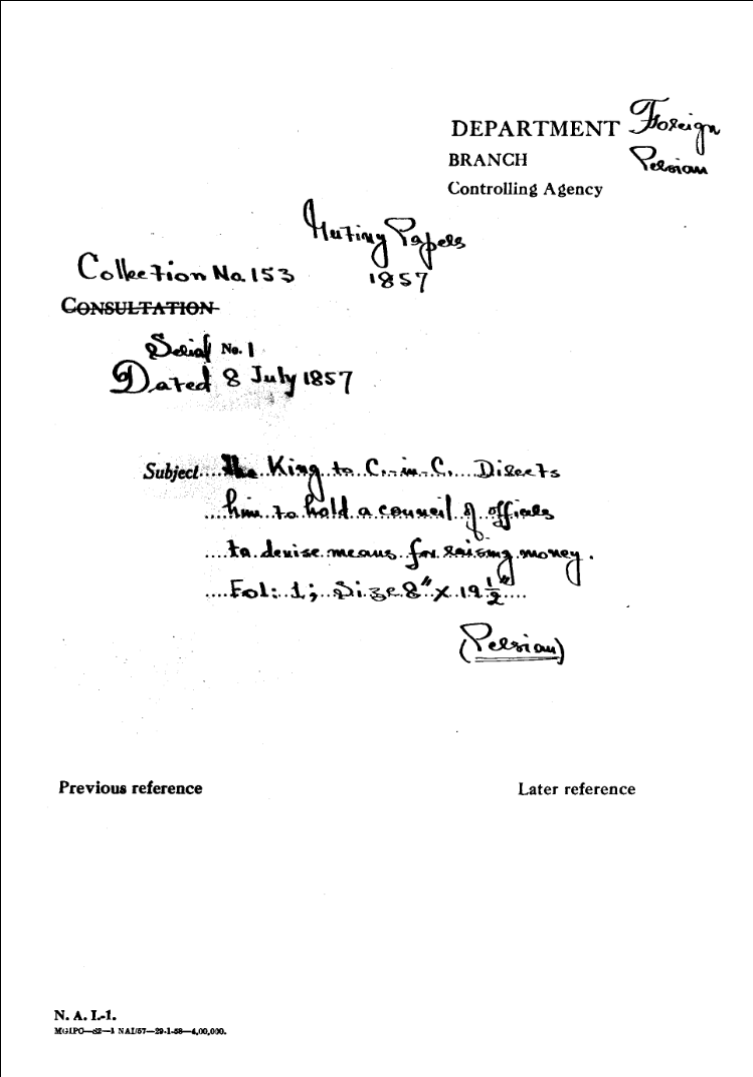 DEPARTMENT Foreign
BRANCH Persian
Controlling Agency
Mutiny Papers
1857
Collection No. 153
CONSULTATION
Serial No. 1
Dated 8 July 1857
Subject....The King to C.-in-C. Directs
him to hold a council of officials
to devise means for raising money.
Fol: 1; Size 8" x 19 1/2"
(Persian)
Previous reference
Later reference
N. A. I.-1.
MGIPC—S2—1 NAI/57—29-1-58—4,00,000.